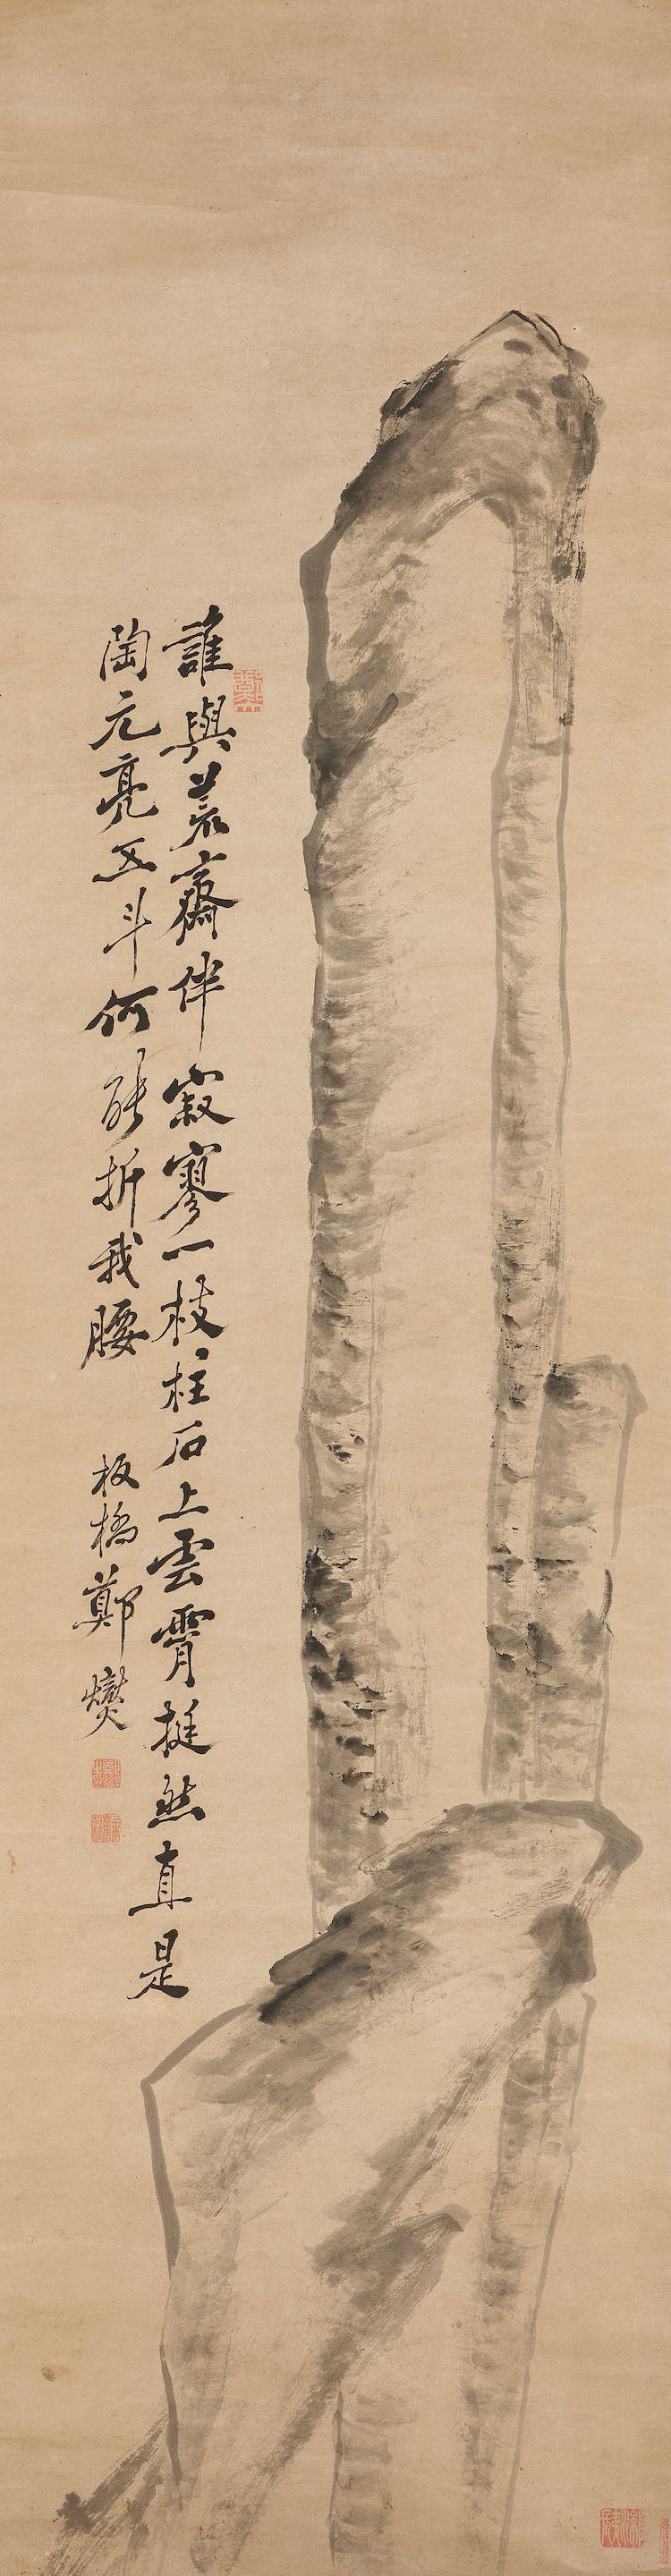 誰與荒齋伴寂寥一枝柱石上雲霄挺然直是
陶元亮五斗何能折我腰
板橋鄭燮